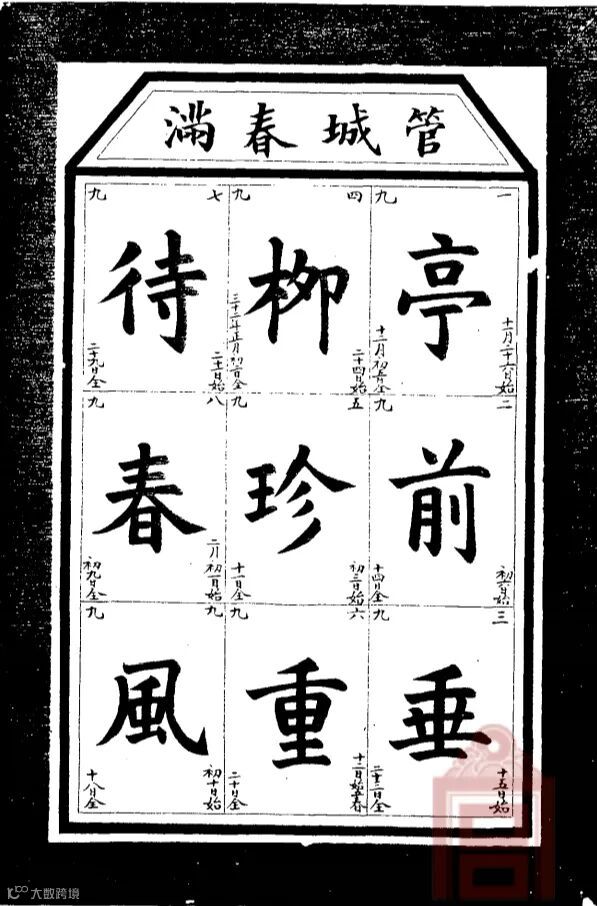 管城春滿
一九
亭
十一月二十六日始
十二月初五日全
二九
前
初六日始
十四日全
三九
垂
十五日始
二十三日全
四九
柳
二十四日始
三十二年正月初二日全
五九
珍
初三日始
十一日全
六九
重
十二日始立春
二十日全
七九
待
二十一日始
二十九日全
八九
春
二月初一日始
初九日全
九九
風
初十日始
十八日全
大数跨境